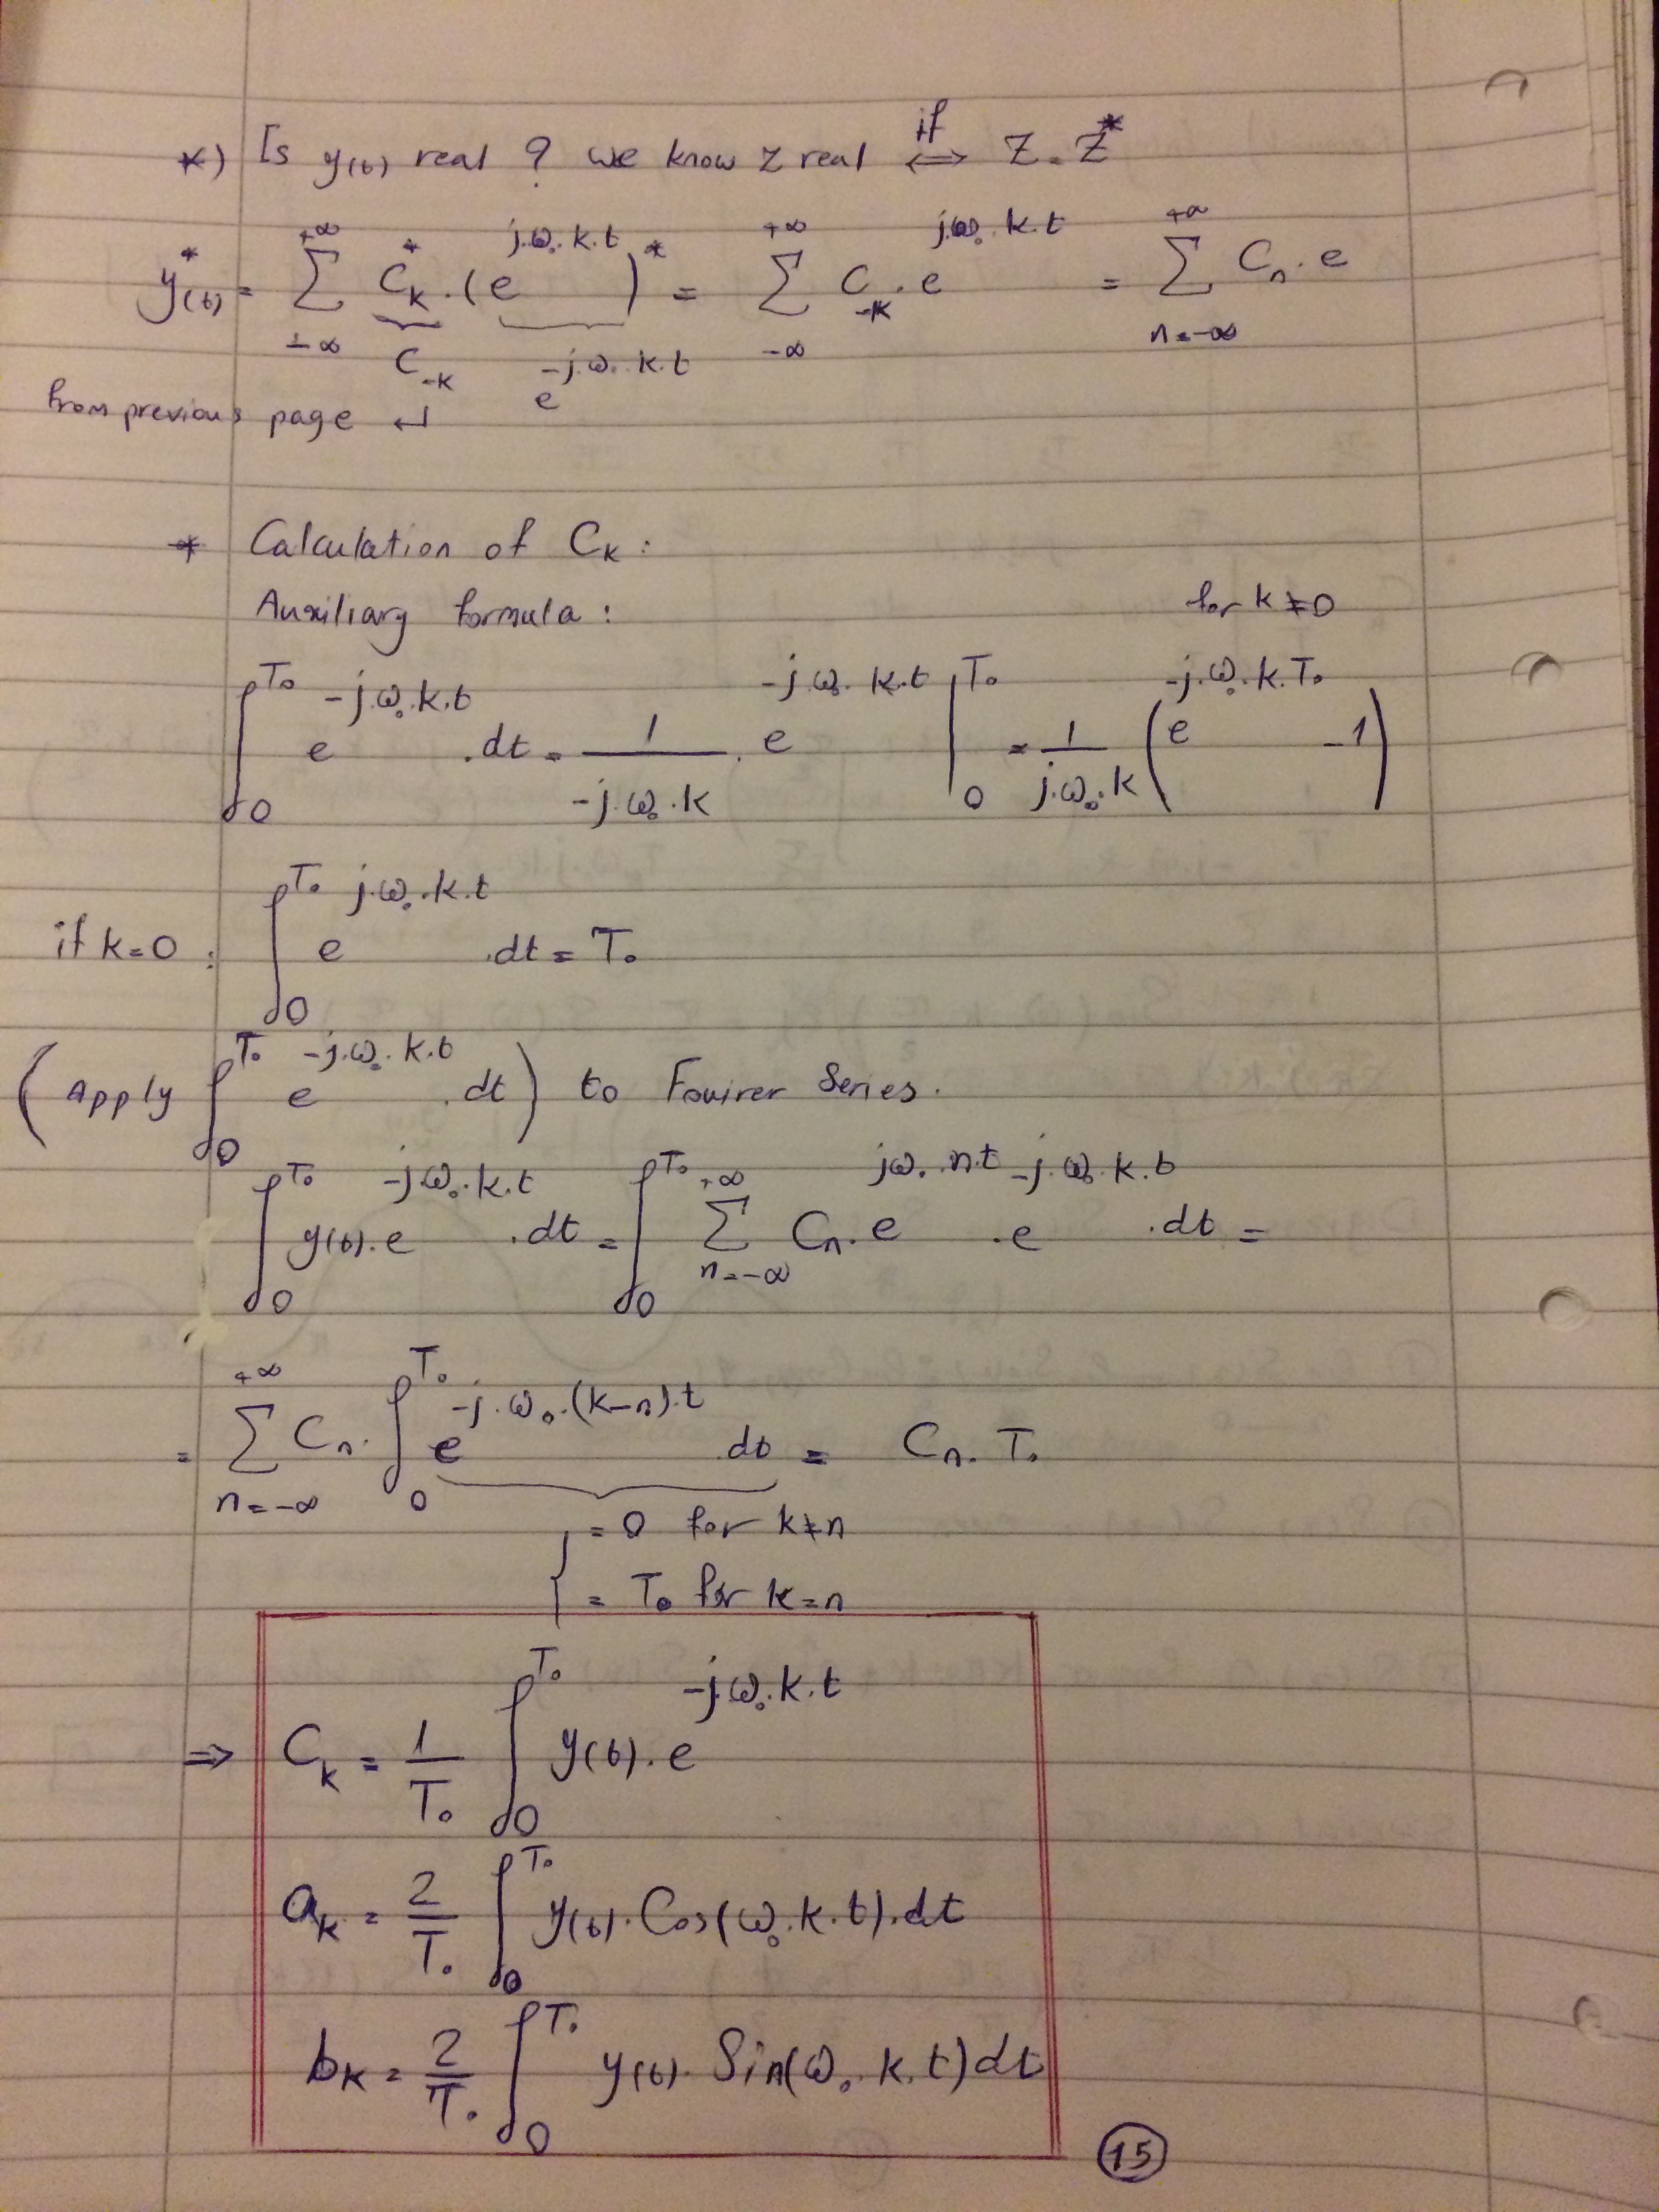 *) Is y(t) real ? we know z real ⇔ if Z = Z*
y*(t) = Σ_{-∞}^{+∞} C*_k . (e^{j.ω₀.k.t})* = Σ_{-∞}^{+∞} C_{-k} . e^{jω₀.k.t} = Σ_{n=-∞}^{+∞} C_n . e
C_{-k} e^{-j.ω₀.k.t}
from previous page ↵
* Calculation of C_k :
Auxiliary formula : for k≠0
∫_0^{T₀} e^{-j.ω₀.k.t} . dt = 1/(-j.ω₀.k) . e^{-j.ω₀.k.t} |_0^{T₀} = 1/(j.ω₀.k) (e^{-j.ω₀.k.T₀} -1)
if k=0 : ∫_0^{T₀} e^{j.ω₀.k.t} .dt = T₀
(Apply ∫_0^{T₀} e^{-j.ω₀.k.t} . dt) to Fouirer Series.
∫_0^{T₀} y(t).e^{-j.ω₀.k.t} .dt = ∫_0^{T₀} Σ_{n=-∞}^{+∞} C_n . e^{jω₀.n.t} . e^{-j.ω₀.k.t} .dt =
= Σ_{n=-∞}^{+∞} C_n . ∫_0^{T₀} e^{-j.ω₀.(k-n).t} dt = C_n . T₀
{ = 0 for k≠n
= T₀ for k=n
⇒ C_k = 1/T₀ ∫_0^{T₀} y(t).e^{-j.ω₀.k.t}
a_k = 2/T₀ ∫_0^{T₀} y(t).Cos(ω₀.k.t).dt
b_k = 2/T₀ ∫_0^{T₀} y(t). Sin(ω₀.k.t)dt
15